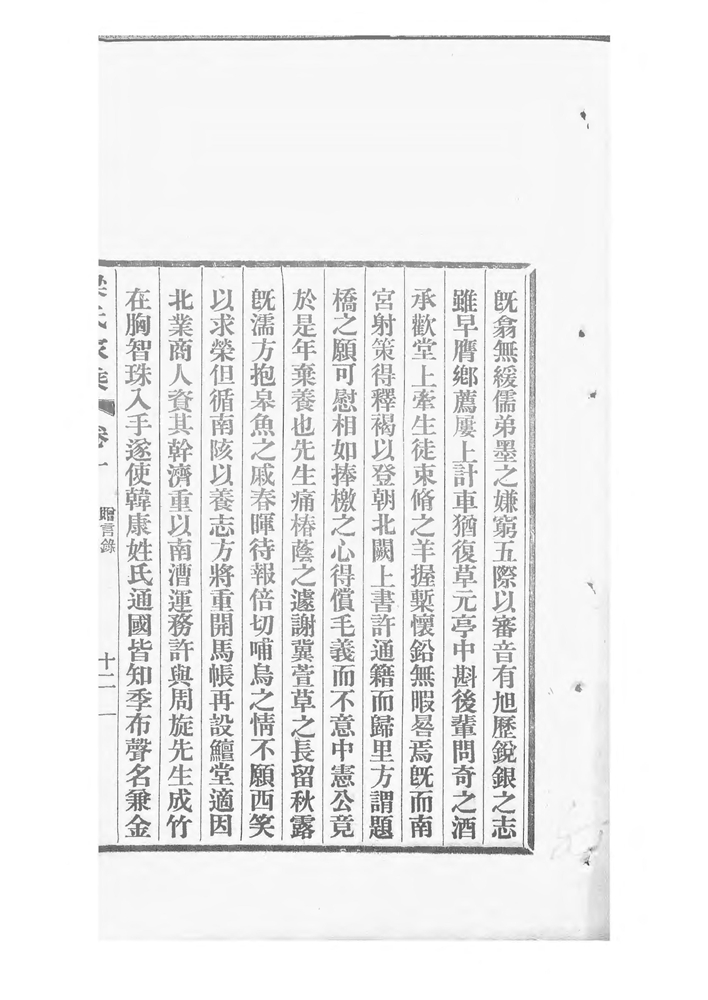 旣翕無緩儒弟墨之嫌窮五際以審音有旭歷銳銀之志
雖早膺鄉薦屢上計車猶復草元亭中斟後輩問奇之酒
承歡堂上牽生徒束脩之羊握槧懷鉛無暇晷焉旣而南
宮射策得釋褐以登朝北闕上書許通籍而歸里方謂題
橋之願可慰相如捧檄之心得償毛義而不意中憲公竟
於是年棄養也先生痛椿蔭之遽謝冀萱草之長留秋露
旣濡方抱皋魚之戚春暉待報倍切哺烏之情不願西笑
以求榮但循南陔以養志方將重開馬帳再設鱣堂適因
北業商人資其幹濟重以南漕運務許與周旋先生成竹
在胸智珠入手遂使韓康姓氏通國皆知季布聲名兼金
梁氏家集 卷一 贈言錄 十二